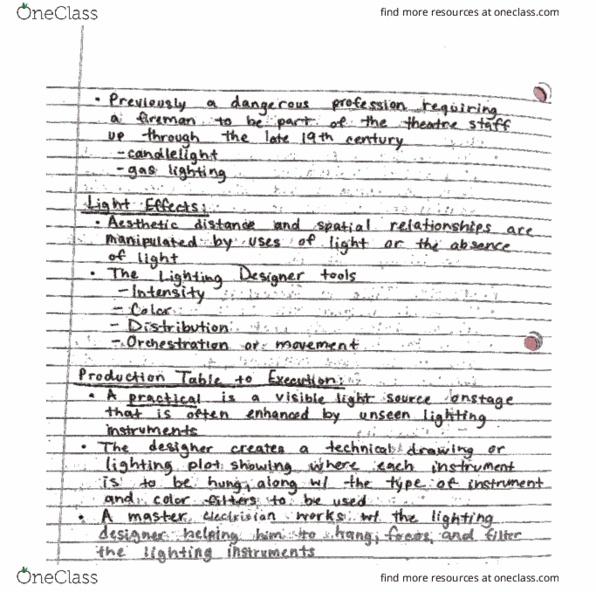 OneClass find more resources at oneclass.com
• Previously a dangerous profession requiring
a fireman to be part of the theatre staff
up through the late 19th century
- candlelight
- gas lighting
Light Effects:
• Aesthetic distance and spatial relationships are
manipulated by uses of light or the absence
of light
• The Lighting Designer tools
- Intensity
- Color
- Distribution
- Orchestration or movement
Production Table to Execution:
• A practical is a visible light source onstage
that is often enhanced by unseen lighting
instruments
• The designer creates a technical drawing or
lighting plot showing where each instrument
is to be hung, along w/ the type of instrument
and color filters to be used
• A master electrician works w/ the lighting
designer helping him to hang, focus, and filter
the lighting instruments
OneClass find more resources at oneclass.com